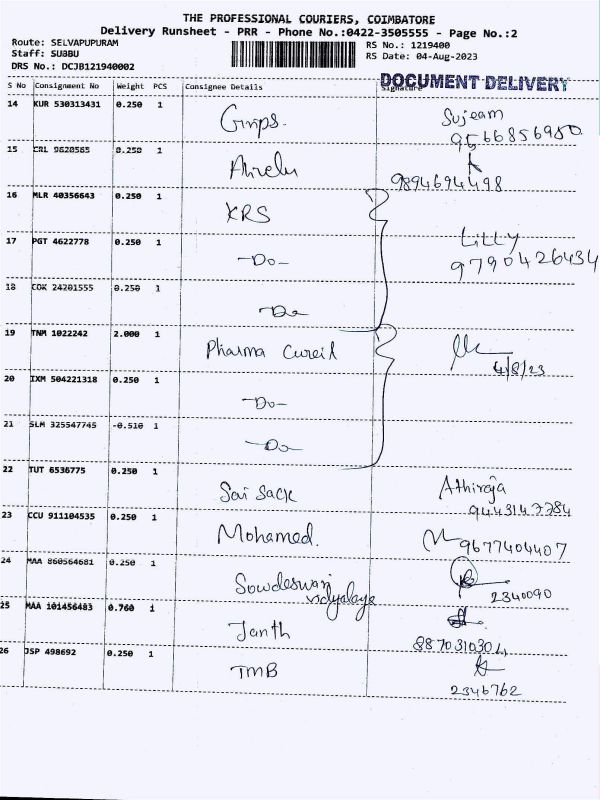 THE PROFESSIONAL COURIERS, COIMBATORE
Delivery Runsheet - PRR - Phone No.:0422-3505555 - Page No.:2
Route: SELVAPUPURAM
RS No.: 1219400
Staff: SUBBU
RS Date: 04-Aug-2023
DRS No.: DCJB121940002
DOCUMENT DELIVERY
S No Consignment No Weight PCS Consignee Details Signature
14 KUR 530313431 0.250 1 Sujeam
9566856980
15 CRL 9820585 0.250 1
9894694498
16 MLR 40356643 0.250 1 KRS
17 PGT 4622778 0.250 1 -Do- Lilly
9790426434
18 COK 24201555 0.250 1 -Do
19 TNM 1022242 2.000 1 Pharma Cureil
4/8/23
20 IXM 504221318 0.250 1 -Do-
21 SLM 325547745 -0.510 1 -Do-
22 TUT 6536775 0.250 1 Sai Sack Athiraja
9443147784
23 CCU 911104535 0.250 1 Mohamed.
9677404407
24 MAA 860564681 0.250 1 Sowdeswari
vidyalaya 2340090
25 MAA 101456483 0.760 1 Janth
8870310304
26 JSP 498692 0.250 1 TMB
2346762